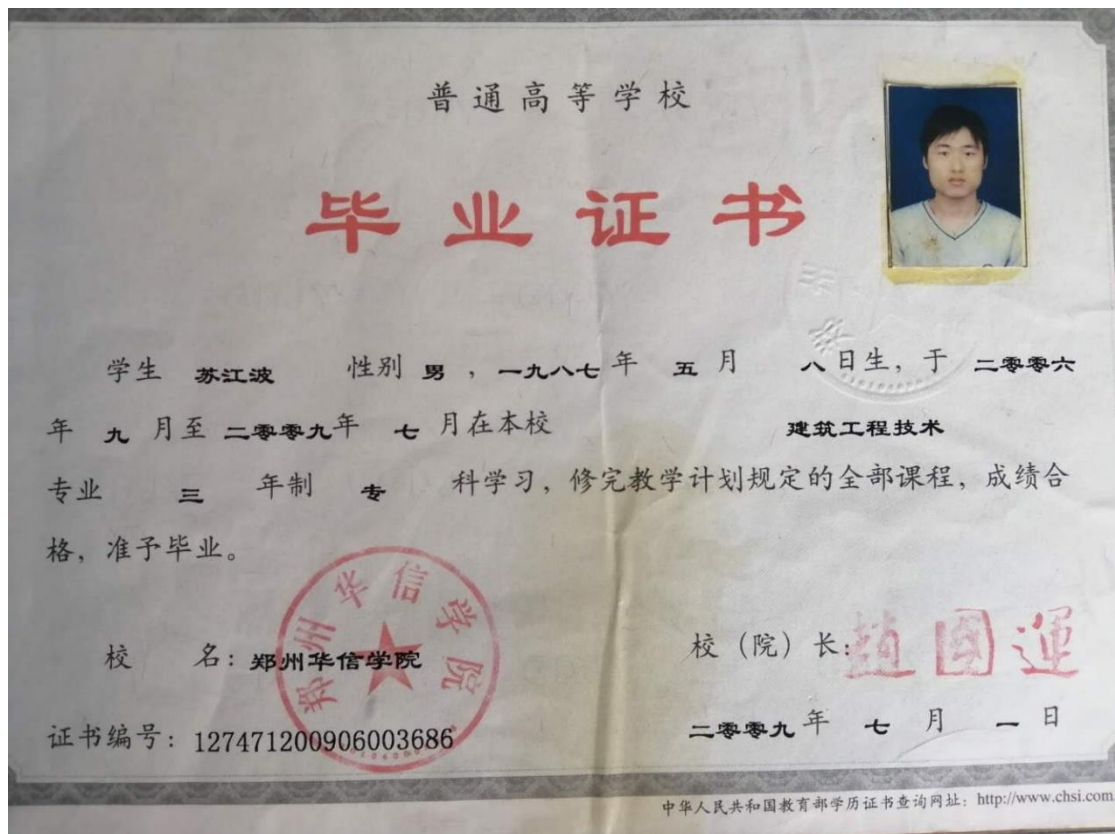 普通高等学校
毕业证书
学生 苏江波 性别 男 ，一九八七 年 五 月 八 日生，于 二零零六
年 九 月至 二零零九 年 七 月在本校 建筑工程技术
专业 三 年制 专 科学习，修完教学计划规定的全部课程，成绩合
格，准予毕业。
郑州华信学院
校 名：郑州华信学院
校（院）长：趙國運
证书编号：127471200906003686
二零零九 年 七 月 一 日
中华人民共和国教育部学历证书查询网址：http://www.chsi.com